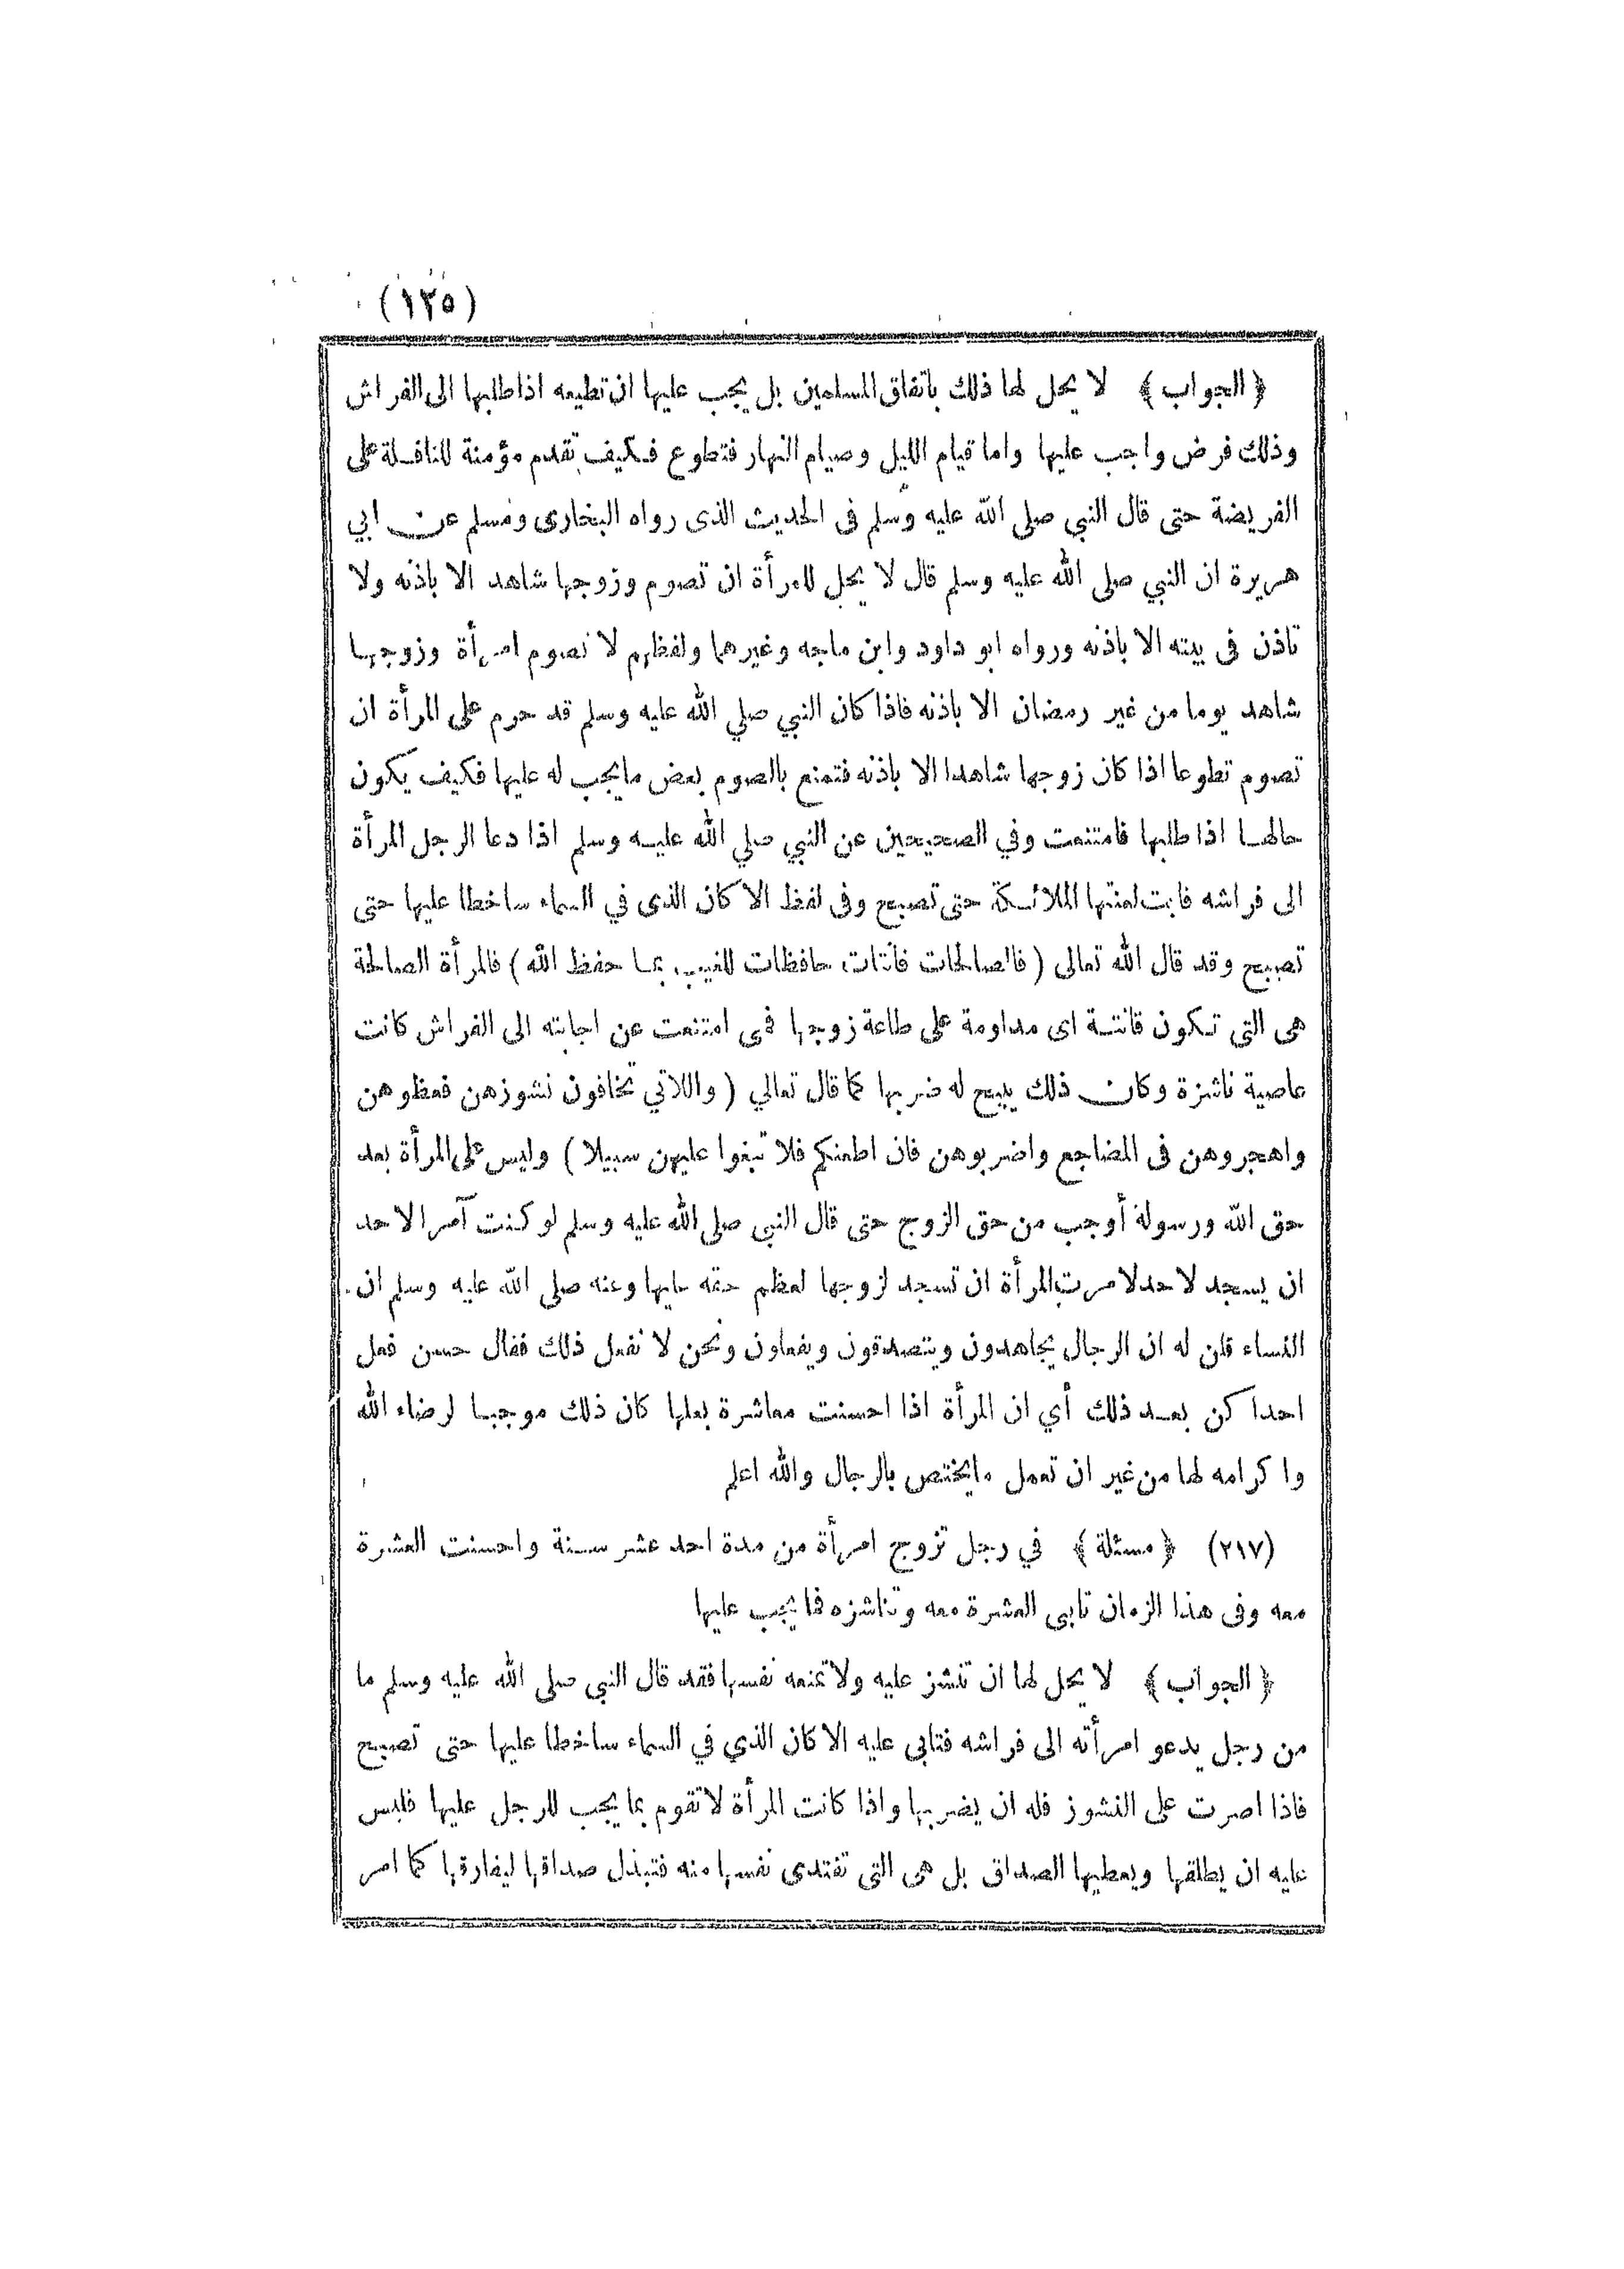 (١٢٥)
﴿ الجواب ﴾ لا يحل لها ذلك باتفاق المسلمين بل يجب عليها ان تطيعه اذا طلبها الى الفراش
وذلك فرض واجب عليها واما قيام الليل وصيام النهار فتطوع فكيف تقدم مؤمنة للنافلة على
الفريضة حتى قال النبي صلى الله عليه وسلم فى الحديث الذى رواه البخارى ومسلم عن ابي
هريرة ان النبي صلى الله عليه وسلم قال لا يحل للمرأة ان تصوم وزوجها شاهد الا باذنه ولا
تاذن فى بيته الا باذنه ورواه ابو داود وابن ماجه وغيرهما ولفظهم لا تصوم امرأة وزوجها
شاهد يوما من غير رمضان الا باذنه فاذا كان النبي صلي الله عليه وسلم قد حرم على المرأة ان
تصوم تطوعا اذا كان زوجها شاهدا الا باذنه فتمنع بالصوم بعض مايجب له عليها فكيف يكون
حالها اذا طلبها فامتنعت وفي الصحيحين عن النبي صلي الله عليه وسلم اذا دعا الرجل المرأة
الى فراشه فابت لعنتها الملائكة حتى تصبح وفى لفظ الا كان الذى في السماء ساخطا عليها حتى
تصبح وقد قال الله تعالى ( فالصالحات قانتات حافظات للغيب بما حفظ الله ) فالمرأة الصالحة
هى التى تكون قانتة اى مداومة على طاعة زوجها فمتى امتنعت عن اجابته الى الفراش كانت
عاصية ناشزة وكان ذلك يبيح له ضربها كما قال تعالي ( واللاتي تخافون نشوزهن فعظوهن
واهجروهن فى المضاجع واضربوهن فان اطعنكم فلا تبغوا عليهن سبيلا ) وليس على المرأة بعد
حق الله ورسوله أوجب من حق الزوج حتى قال النبي صلى الله عليه وسلم لو كنت آمرا لاحد
ان يسجد لاحد لامرت المرأة ان تسجد لزوجها لعظم حقه عليها وعنه صلى الله عليه وسلم ان
النساء قلن له ان الرجال يجاهدون ويتصدقون ويفعلون ونحن لا نفعل ذلك فقال حسن فعل
احداكن بعد ذلك أي ان المرأة اذا احسنت معاشرة بعلها كان ذلك موجبا لرضاء الله
واكرامه لها من غير ان تعمل مايختص بالرجال والله اعلم
(٢١٧) ﴿ مسئلة ﴾ في رجل تزوج امرأة من مدة احد عشر سنة واحسنت العشرة
معه وفى هذا الزمان تابى العشرة معه وتناشزه فما يجب عليها
﴿ الجواب ﴾ لا يحل لها ان تنشز عليه ولا تمنعه نفسها فقد قال النبي صلى الله عليه وسلم ما
من رجل يدعو امرأته الى فراشه فتابى عليه الا كان الذي في السماء ساخطا عليها حتى تصبح
فاذا اصرت على النشوز فله ان يضربها واذا كانت المرأة لا تقوم بما يجب للرجل عليها فليس
عليه ان يطلقها ويعطيها الصداق بل هى التى تفتدى نفسها منه فتبذل صداقها ليفارقها كما امر